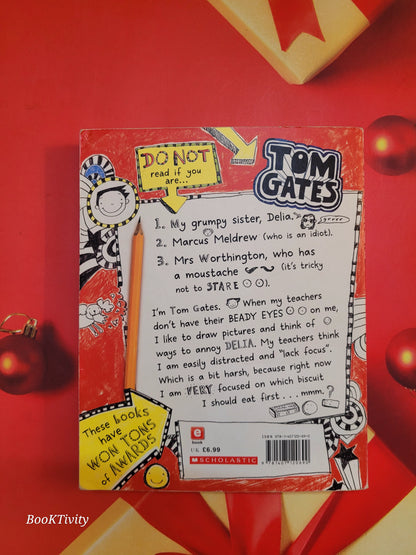 DO NOT
read if you
are...
TOM
GATES
1. My grumpy sister, Delia.
grrrr
2. Marcus Meldrew (who is an idiot).
3. Mrs Worthington, who has
a moustache (it's tricky
not to STARE).
I'm Tom Gates. When my teachers
don't have their BEADY EYES on me,
I like to draw pictures and think of
ways to annoy DELIA. My teachers think
I am easily distracted and "lack focus".
Which is a bit harsh, because right now
I am VERY focused on which biscuit
I should eat first . . . mmm. ?
These books
have
WON TONS
of AWARDS
e
book
UK £6.99
SCHOLASTIC
BooKTivity